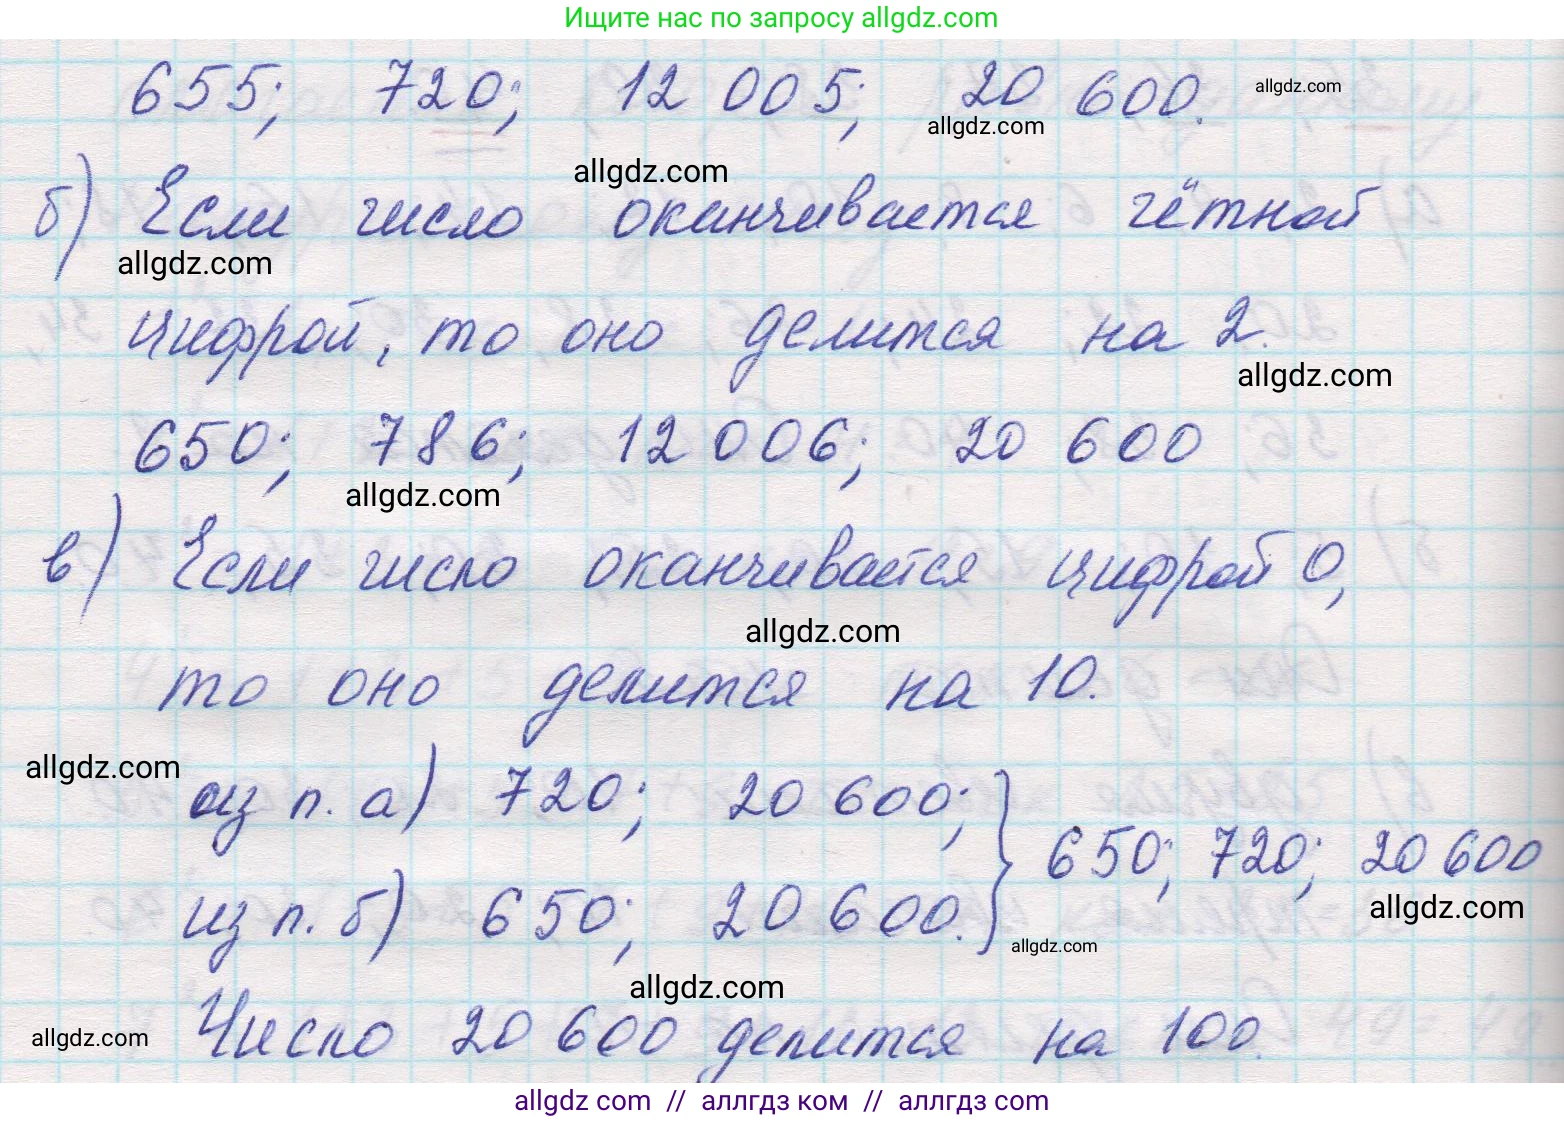 Ищите нас по запросу allgdz.com
655; 720; 12 005; 20 600.
allgdz.com
allgdz.com
allgdz.com
б) Если число оканчивается чётной
allgdz.com
цифрой, то оно делится на 2.
allgdz.com
650; 786; 12 006; 20 600
allgdz.com
в) Если число оканчивается цифрой 0,
allgdz.com
то оно делится на 10.
allgdz.com
из п. а) 720; 20 600;
650; 720; 20 600
allgdz.com
из п. б) 650; 20 600.
allgdz.com
allgdz.com
Число 20 600 делится на 100.
allgdz.com
allgdz com // аллгдз ком // аллгдз com